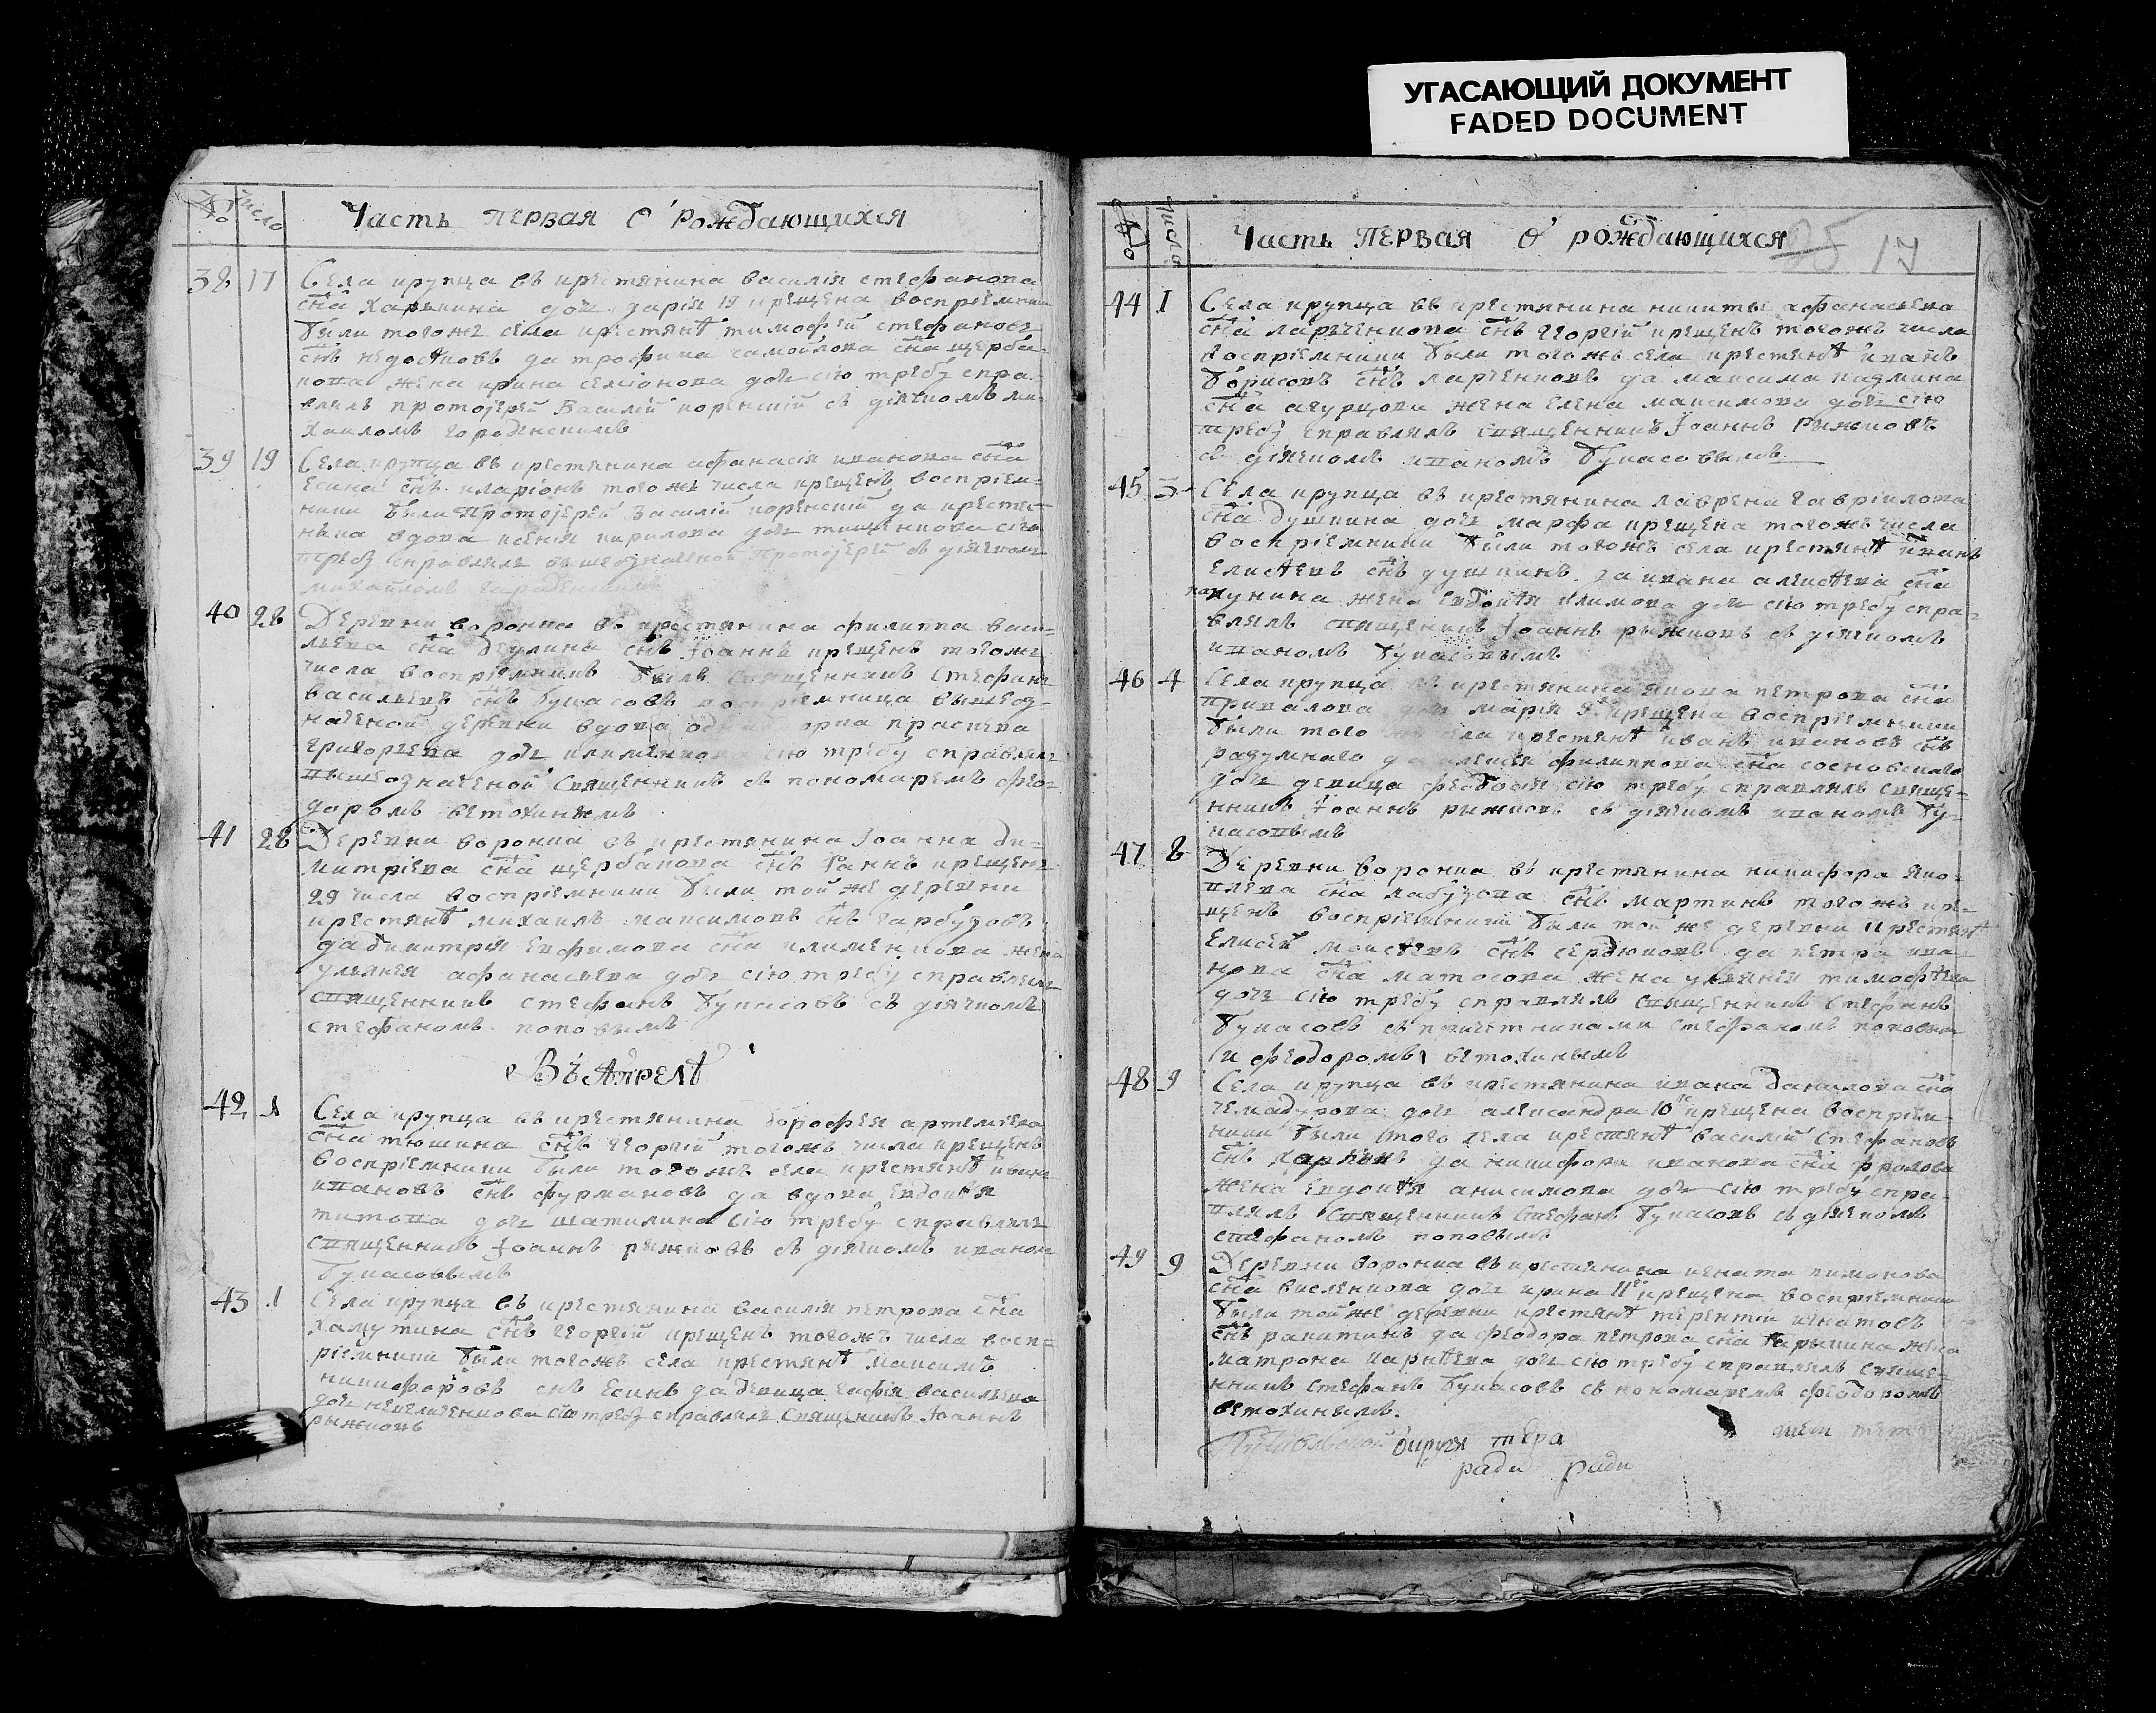 УГАСАЮЩИЙ ДОКУМЕНТ
FADED DOCUMENT
№ число
Часть первая о рождающихся
38 17 Села крупца въ крестянина василія стефанова
сна Харькина дочь дарія 19 крещена восприемники
были тогожъ села крестянѣ тимофѣй стефановъ
снъ недосѣковъ да трофима самойлова сна щерба-
кова жена ирина семіонова дочь сію требу спра-
влялъ протоіерей Василій коренскій съ діячкомъ ми-
хаиломъ городенскимъ
39 19 Села крупца въ крестянина афанасія иванова сна
Есина снъ иларіонъ тогожъ числа крещенъ восприем-
ники были Протоіерей Василій коренскій да крестя-
нина вдова ксенія кирилова дочь тищенкова сію
требу справлялъ вышеозначеной протоіерей съ діячкомъ
михайломъ городенскимъ
40 28 Деревни воронка въ крестянина филиппа васи-
льева сна Деулина снъ Іоаннъ крещенъ тогожъ
числа восприемникъ былъ священникъ Стефанъ
васильевъ снъ букасовъ восприемница вышеоз-
наченой деревни вдова прасковя
григоріева дочь сію требу справлялъ
вышеозначеной Священникъ съ пономаремъ фео-
доромъ ветохинымъ
41 28 Деревни воронка въ крестянина Іоанна ди-
митріева сна щербакова снъ Іаннъ крещенъ
29 числа восприемники были той же деревни
крестянѣ михаилъ максимовъ снъ гарбузовъ
да димитрія Евфимова сна клименкова жена
улянія афанасьева дочь сію требу справлялъ
священникъ стефанъ букасовъ съ діячкомъ
стефаномъ поповымъ
Въ Апрелѣ
42 1 Села крупца въ крестянина дорофея артеміева
сна тюшина снъ Георгій тогожъ числа крещенъ
восприемники были тогожъ села крестянѣ іванъ
ивановъ снъ фурмановъ да вдова Евдокѣя
титова дочь шатилина сію требу справлялъ
священникъ Іоаннъ рыжковъ съ діячкомъ иваномъ
Букасовымъ
43 1 Села крупца въ крестянина василія петрова сна
хамутина снъ Георгій крещенъ тогожъ числа восп-
ріемники были тогожъ села крестянѣ максимъ
никифоровъ снъ Есинъ да девица агафія васильева
дочь сію требу справлялъ Священникъ Іоаннъ
рыжковъ
№ число
Часть первая о рождающихся 17
44 1 Села крупца въ крестянина никиты афанасьева
сна ларченкова снъ Георгій крещенъ тогожъ числа
восприемники были тогожъ села крестянѣ иванъ
борисовъ снъ ларченковъ да максима кадмина
сна агурцова жена Елена максимова дочь сію
требу справлялъ священникъ Іоаннъ Рыжковъ
съ діячкомъ иваномъ букасовымъ
45 3 Села крупца въ крестянина лаврена гавріилова
сна душкина дочь марфа крещена тогожъ числа
восприемники были тогожъ села крестянѣ иванъ
Елисѣевъ снъ душкинъ да ивана алексѣева сна
пакунина жена Евдокѣя климова дочь сію требу спра-
влялъ священникъ Іоаннъ рыжковъ съ діячкомъ
иваномъ букасовымъ
46 4 Села крупца въ крестянина якова петрова сна
привалова дочь марія крещена восприемники
были тогожъ села крестянѣ иванъ ивановъ снъ
разумнаго да алексѣя филиппова сна сосновскаго
дочь девица феодосія сію требу справлялъ свяще-
нникъ Іоаннъ рыжковъ съ діячкомъ иваномъ бу-
касовымъ
47 8 Деревни воронка въ крестянина никифора яко-
влева сна лабузова снъ мартинъ тогожъ кре-
щенъ восприемники были той же деревни крестянѣ
Елисей моисѣевъ снъ сердюковъ да петра ива-
нова сна матосова жена улянія тимофѣева
дочь сію требу справлялъ священникъ стефанъ
букасовъ съ причетниками стефаномъ поповым
и феодоромъ ветохинымъ
48 9 Села крупца въ крестянина ивана данилова сна
чемадурова дочь александра 10го крещена восприем-
ники были того села крестянѣ василій стефановъ
снъ харькинъ да никифора иванова сна фролова
жена Евдокѣя анисимова дочь сію требу спра-
влялъ священникъ стефанъ букасовъ съ діячкомъ
стефаномъ поповымъ
49 9 Деревни воронка въ крестянина игната пимонова
сна висленкова дочь ирина 11го крещена восприемники
были той же деревни крестянѣ терентій игнатовъ
снъ ракитинъ да феодора петрова сна жена
матрона карнѣева дочь сію требу справлялъ свяще-
нникъ стефанъ букасовъ съ пономаремъ феодоромъ
ветохинымъ.
округи
ради ради